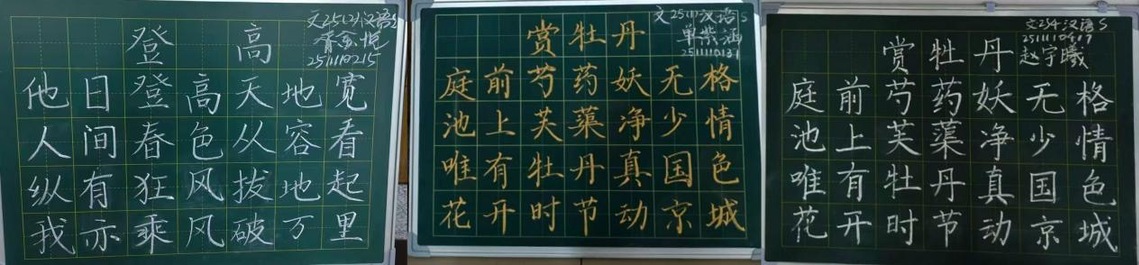 登高
文25(2)汉语S
251110215
他日登高天地宽
人间春色从容看
纵有狂风拔地起
我亦乘风破万里
赏牡丹
文25(1)汉语S
单紫涵
251110131
庭前芍药妖无格
池上芙蕖净少情
唯有牡丹真国色
花开时节动京城
赏牡丹
文254汉语S
2511110417
赵宇曦
庭前芍药妖无格
池上芙蕖净少情
唯有牡丹真国色
花开时节动京城